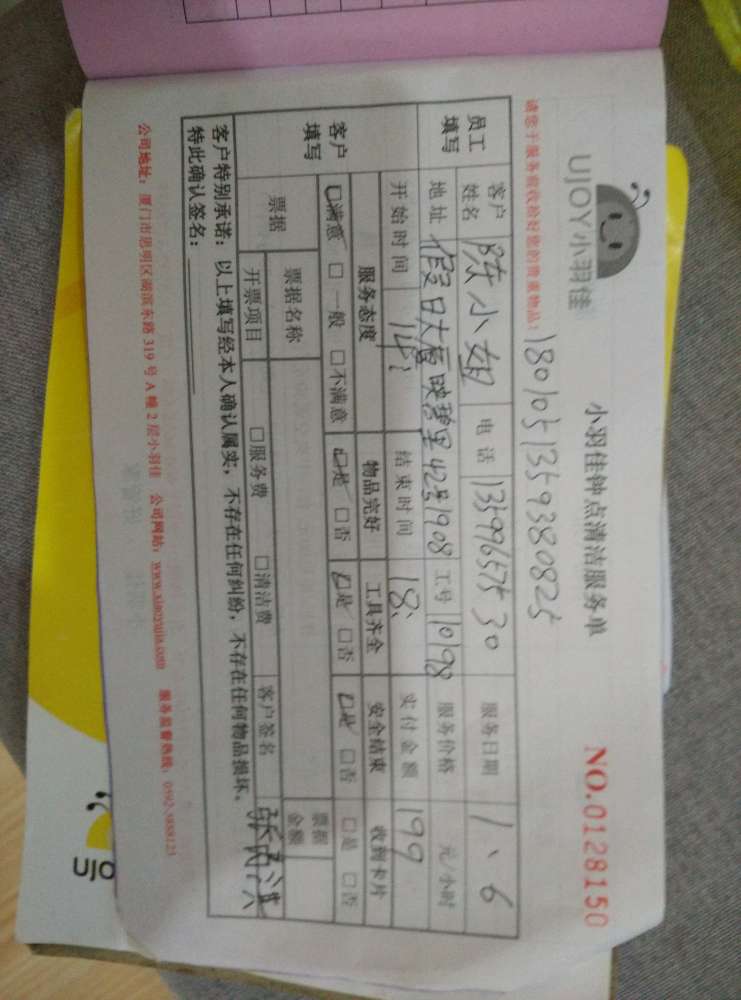 UJOY小羽佳
小羽佳钟点清洁服务单
NO.0128150
请您于服务前收拾好您的贵重物品：
1801051359380825
员工填写 客户姓名 陈小姐 电话 13599657530 服务日期 1、6
地址 假日大唐映碧里42号1908 工号 10198 服务价格 元/小时
开始时间 14: 结束时间 18: 实付金额 199
客户填写 服务态度 物品完好 工具齐全 安全结束 收到卡片
☑满意 □一般 □不满意 ☑是 □否 ☑是 □否 ☑是 □否 □是 □否
票据 票据名称 票据金额
开票项目 □服务费 □清洁费 客户签名
客户特别承诺：以上填写经本人确认属实，不存在任何纠纷，不存在任何物品损坏。
特此确认签名：
公司地址：厦门市思明区湖滨东路319号A幢2层小羽佳 公司网站：www.xiaoyujia.com 服务监督热线：0592-5888123